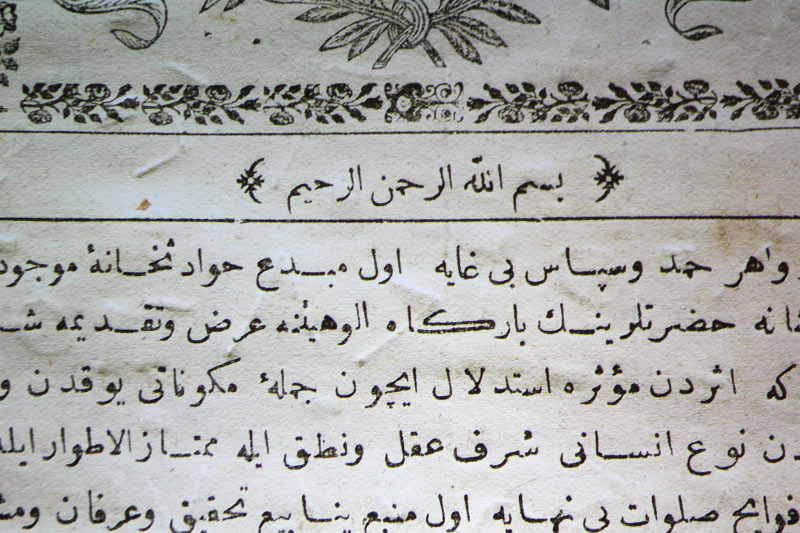 بسم الله الرحمن الرحيم
واهر حمد وسپاس بى غايه اول مبدع حوادثخانۀ موجود
حضرتلرينك باركاه الوهيتنه عرض وتقديمه
كه اثردن مؤثره استدلال ايچون جملۀ مكوناتى يوقدن و
دن نوع انسانى شرف عقل ونطق ايله ممتازالاطوار ايله
فوايح صلوات بى نهايه اول منبع ينابيع تحقيق وعرفان